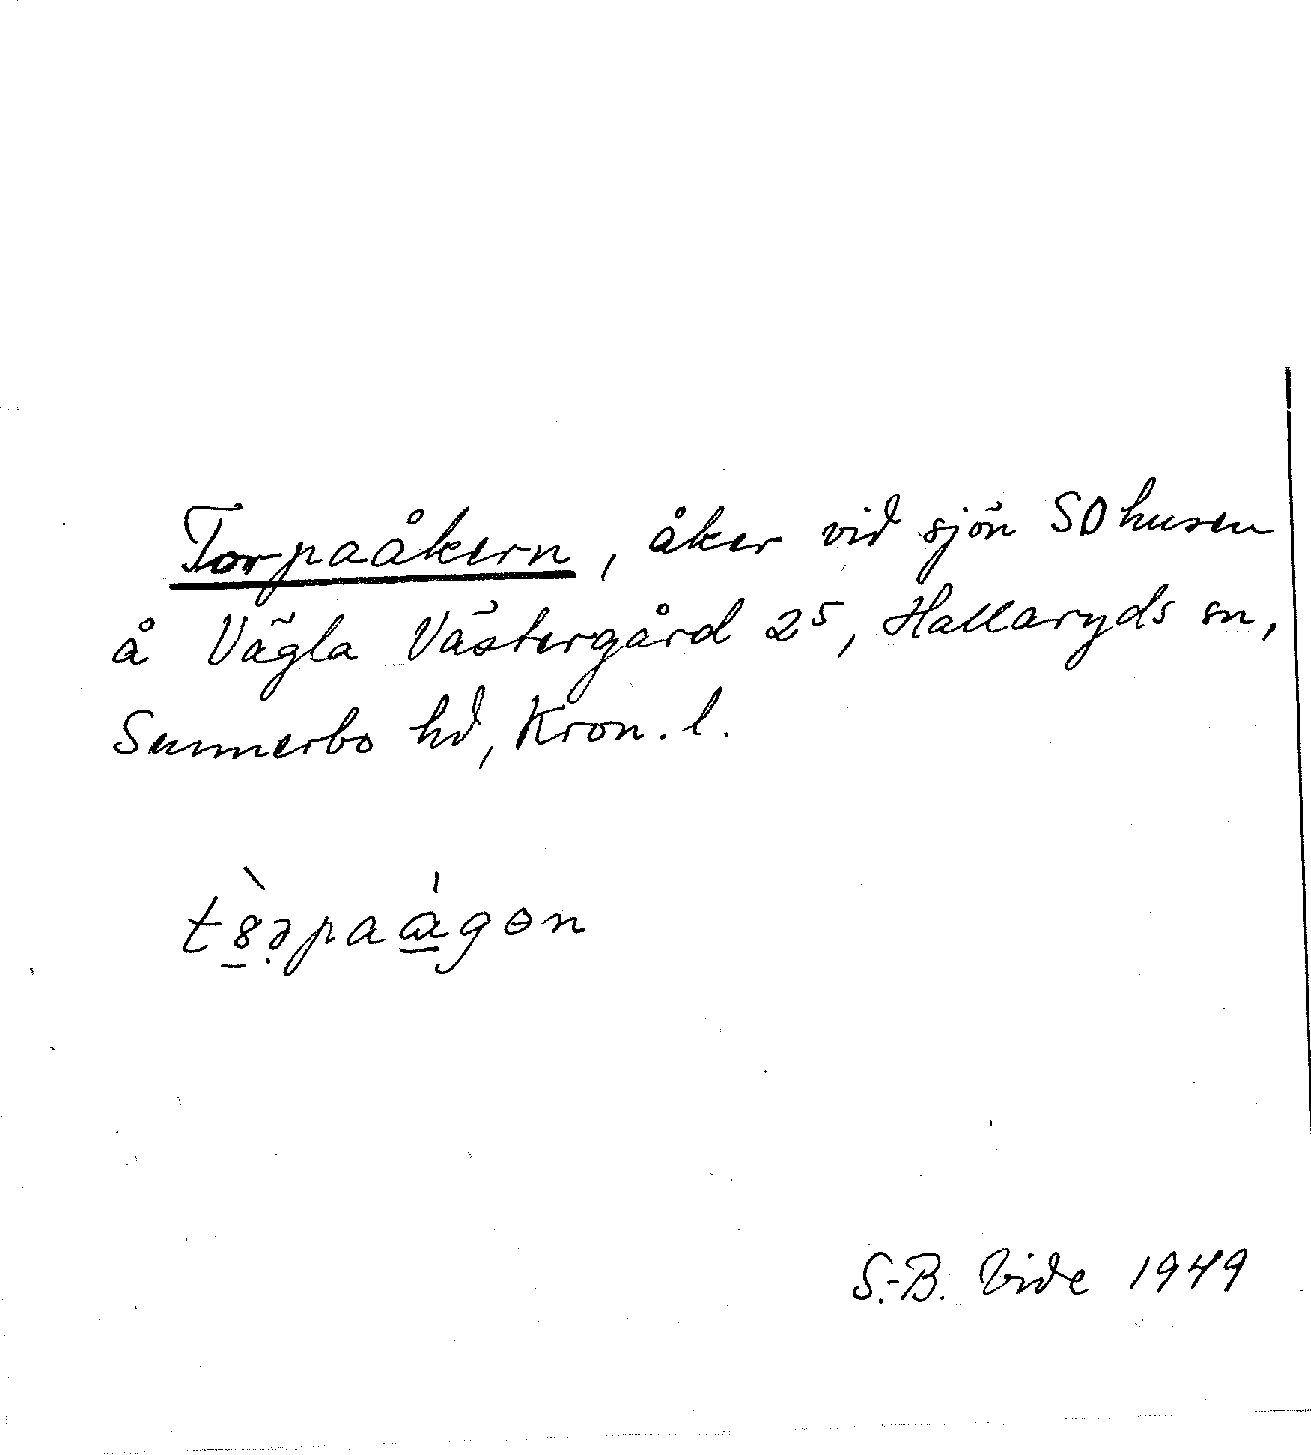 Torpaåkern, åker vid sjön SO husen
å Vägla Västergård 2⁵, Hallaryds sn,
Sunnerbo hd, Kron. l.
S.-B. Vide 1949